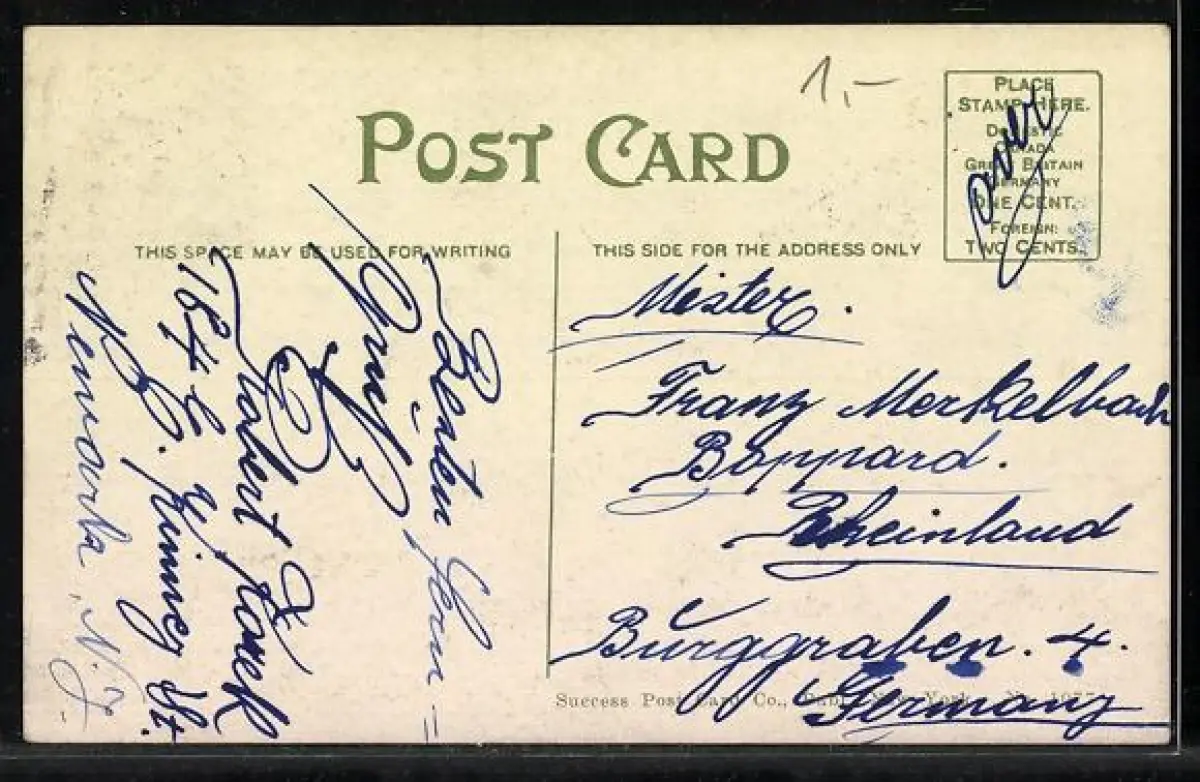 1,-
POST CARD
PLACE
STAMP HERE.
DOMESTIC
CANADA
GREAT BRITAIN
GERMANY
ONE CENT.
FOREIGN:
TWO CENTS.
over
THIS SPACE MAY BE USED FOR WRITING
THIS SIDE FOR THE ADDRESS ONLY
Besten
Robert
164
Kinney St.
Newark, N.J.
Mister.
Franz Merkelbach
Boppard.
Rheinland
Burggraben. 4.
Germany
Success Post Card Co., New York